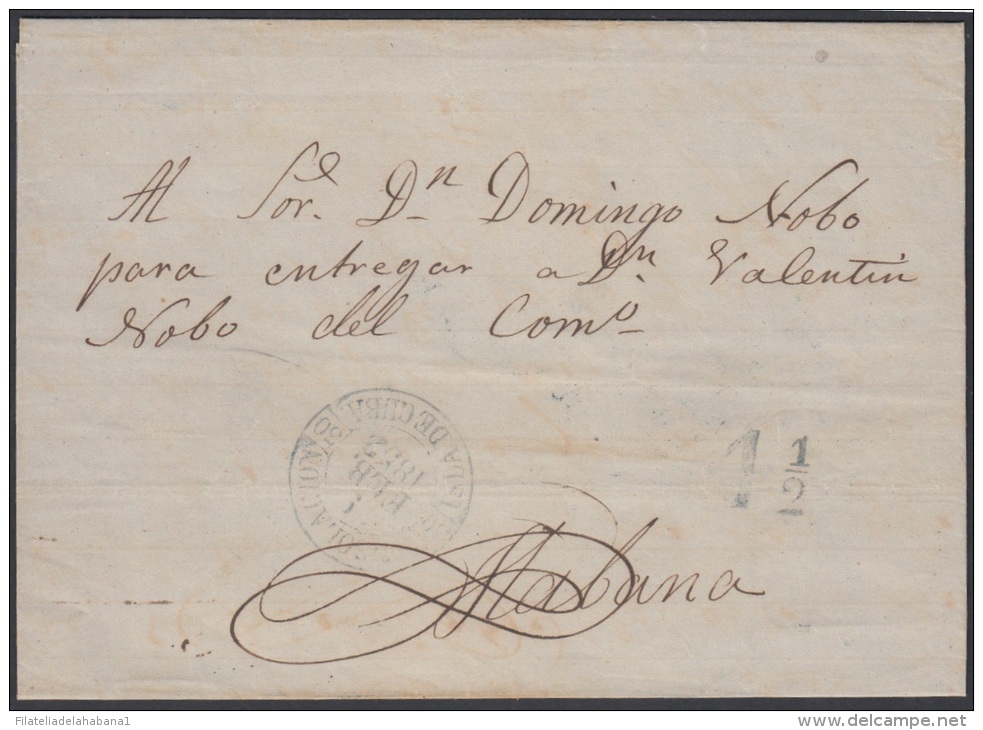 Al Sor. Dn Domingo Nobo
para entregar a Dn Valentin
Nobo del Como
ISLA DE CUBA
FEB
1852
1 1/2
Habana
Filateliadelahabana1
www.delcampe.net